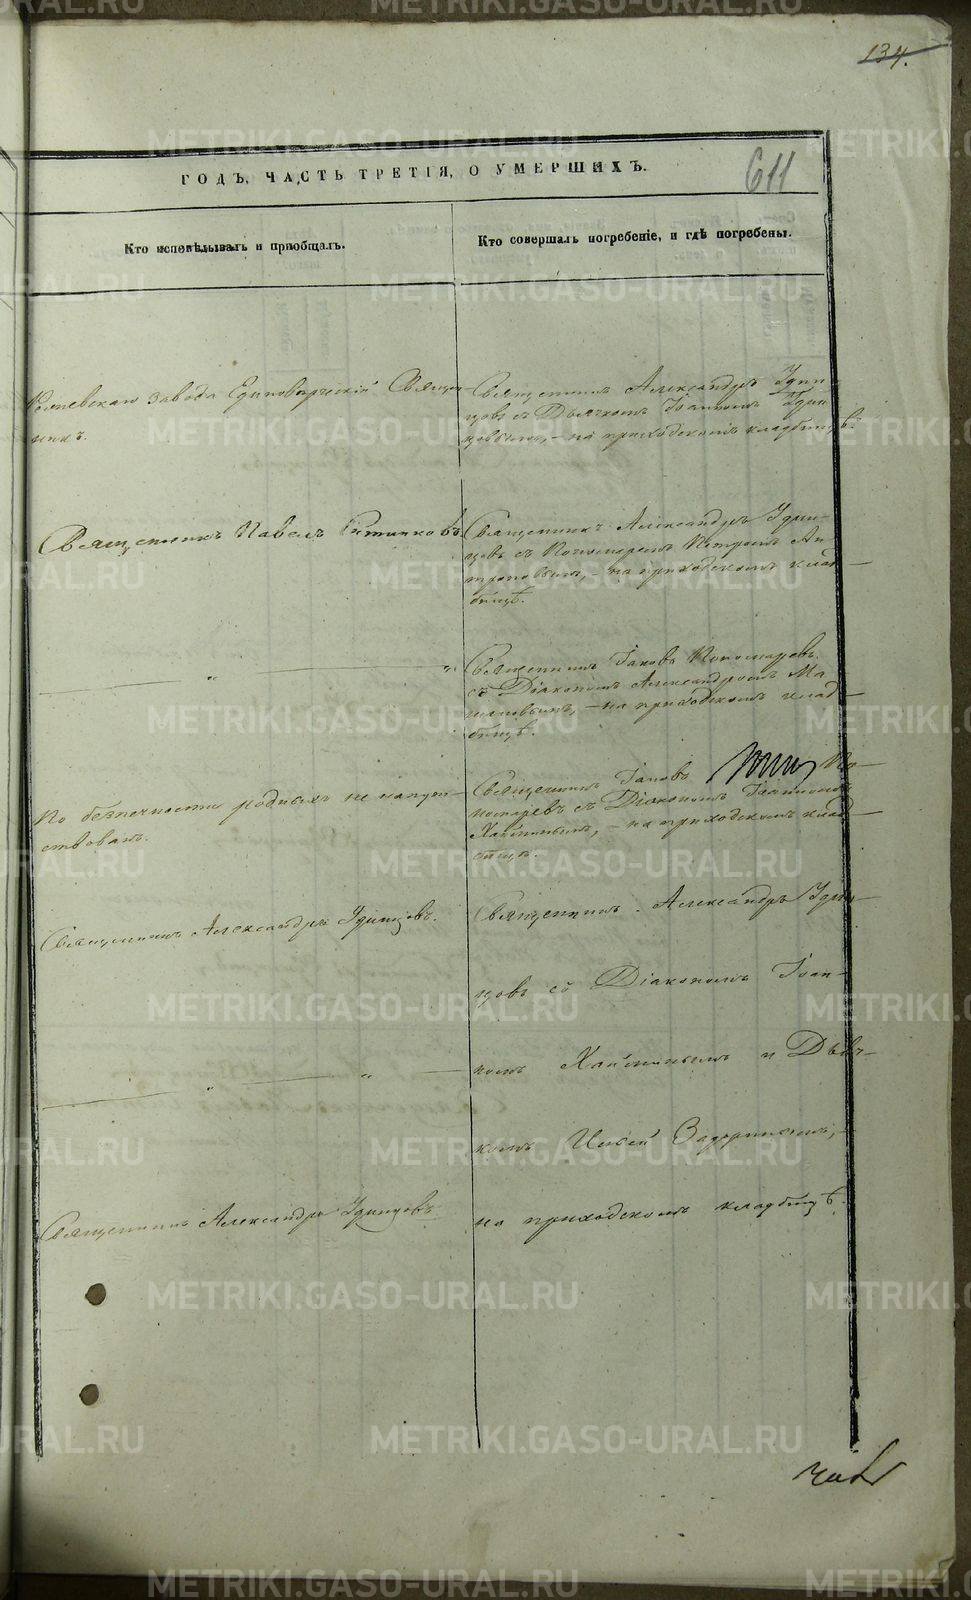 134.
611
ГОДЪ, ЧАСТЬ ТРЕТІЯ, О УМЕРШИХЪ.
Кто исповѣдывалъ и пріобщалъ.
Кто совершалъ погребеніе, и гдѣ погребены.
завода Единовѣрческій Священ-
никъ.
Священникъ Александръ Удин-
цовъ съ Дьячкомъ Іоанномъ Удин-
цовымъ, – на приходскомъ кладбищѣ.
Священникъ Павелъ
Священникъ Александръ Удин-
цовъ съ Пономаремъ Петромъ Ан-
троповымъ, – на приходскомъ клад-
бищѣ.
Священникъ Іаковъ Пономаревъ
съ Діакономъ Александромъ
– на приходскомъ клад-
бищѣ.
По безпечности родныхъ не напут-
ствованъ.
Священникъ Іаковъ По-
номаревъ съ Діакономъ Іоанномъ
– на приходскомъ клад-
бищѣ.
Священникъ Александръ Удинцовъ.
Священникъ Александръ Удин-
цовъ съ Діакономъ Іоан-
номъ и Дьяч-
комъ
на приходскомъ кладбищѣ.
Священникъ Александръ Удинцовъ.
METRIKI.GASO-URAL.RU